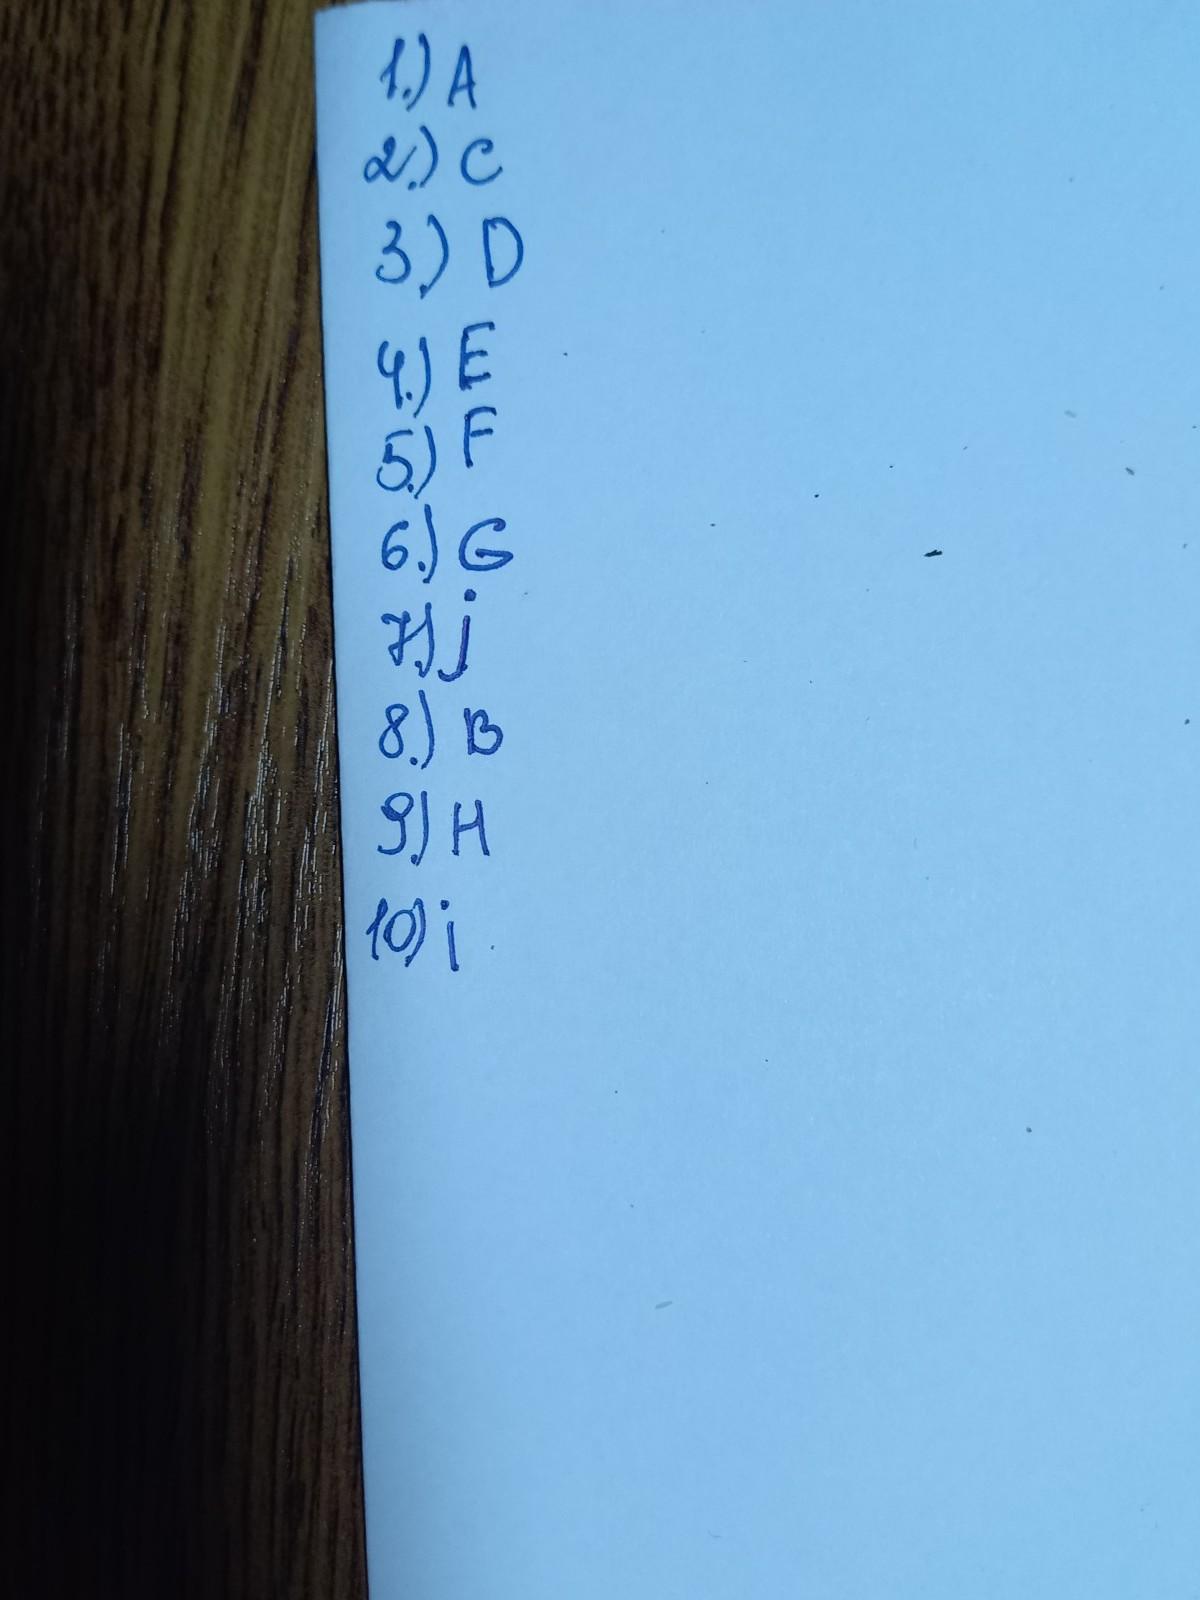 1.) A
2.) C
3.) D
4.) E
5.) F
6.) G
7.) j
8.) B
9.) H
10.) i